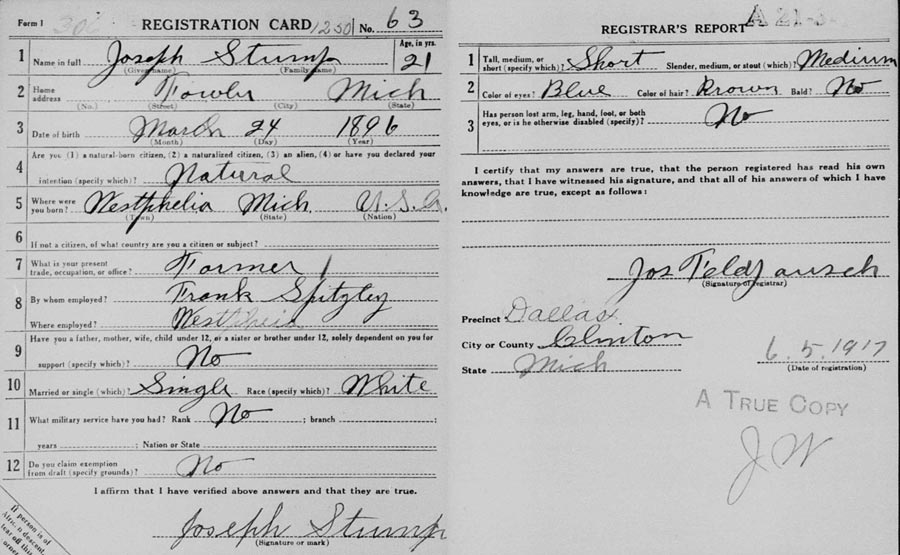 Form 1
REGISTRATION CARD 1250 No. 63
1 Name in full Joseph Stump Age, in yrs. 21
(Given name) (Family name)
2 Home address Fowler Mich
(No.) (Street) (City) (State)
3 Date of birth March 24 1896
(Month) (Day) (Year)
4 Are you (1) a natural-born citizen, (2) a naturalized citizen, (3) an alien, (4) or have you declared your
intention (specify which)? Natural
5 Where were you born? Westphelia Mich U.S.A.
(Town) (State) (Nation)
6 If not a citizen, of what country are you a citizen or subject?
7 What is your present trade, occupation, or office? Farmer 1
8 By whom employed? Frank Spitzley
Where employed? Westphelia
9 Have you a father, mother, wife, child under 12, or a sister or brother under 12, solely dependent on you for
support (specify which)? No
10 Married or single (which)? Single Race (specify which)? White
11 What military service have you had? Rank No ; branch ;
years ; Nation or State
12 Do you claim exemption from draft (specify grounds)? No
I affirm that I have verified above answers and that they are true.
Joseph Stump
(Signature or mark)
If person is of
African descent,
tear off this
corner
REGISTRAR'S REPORT
1 Tall, medium, or short (specify which)? Short Slender, medium, or stout (which)? Medium
2 Color of eyes? Blue Color of hair? Brown Bald? No
3 Has person lost arm, leg, hand, foot, or both
eyes, or is he otherwise disabled (specify)? No
I certify that my answers are true, that the person registered has read his own
answers, that I have witnessed his signature, and that all of his answers of which I have
knowledge are true, except as follows:
Jos Feldpausch
(Signature of registrar)
Precinct Dallas
City or County Clinton
State Mich
6.5.1917
(Date of registration)
A TRUE COPY
J W